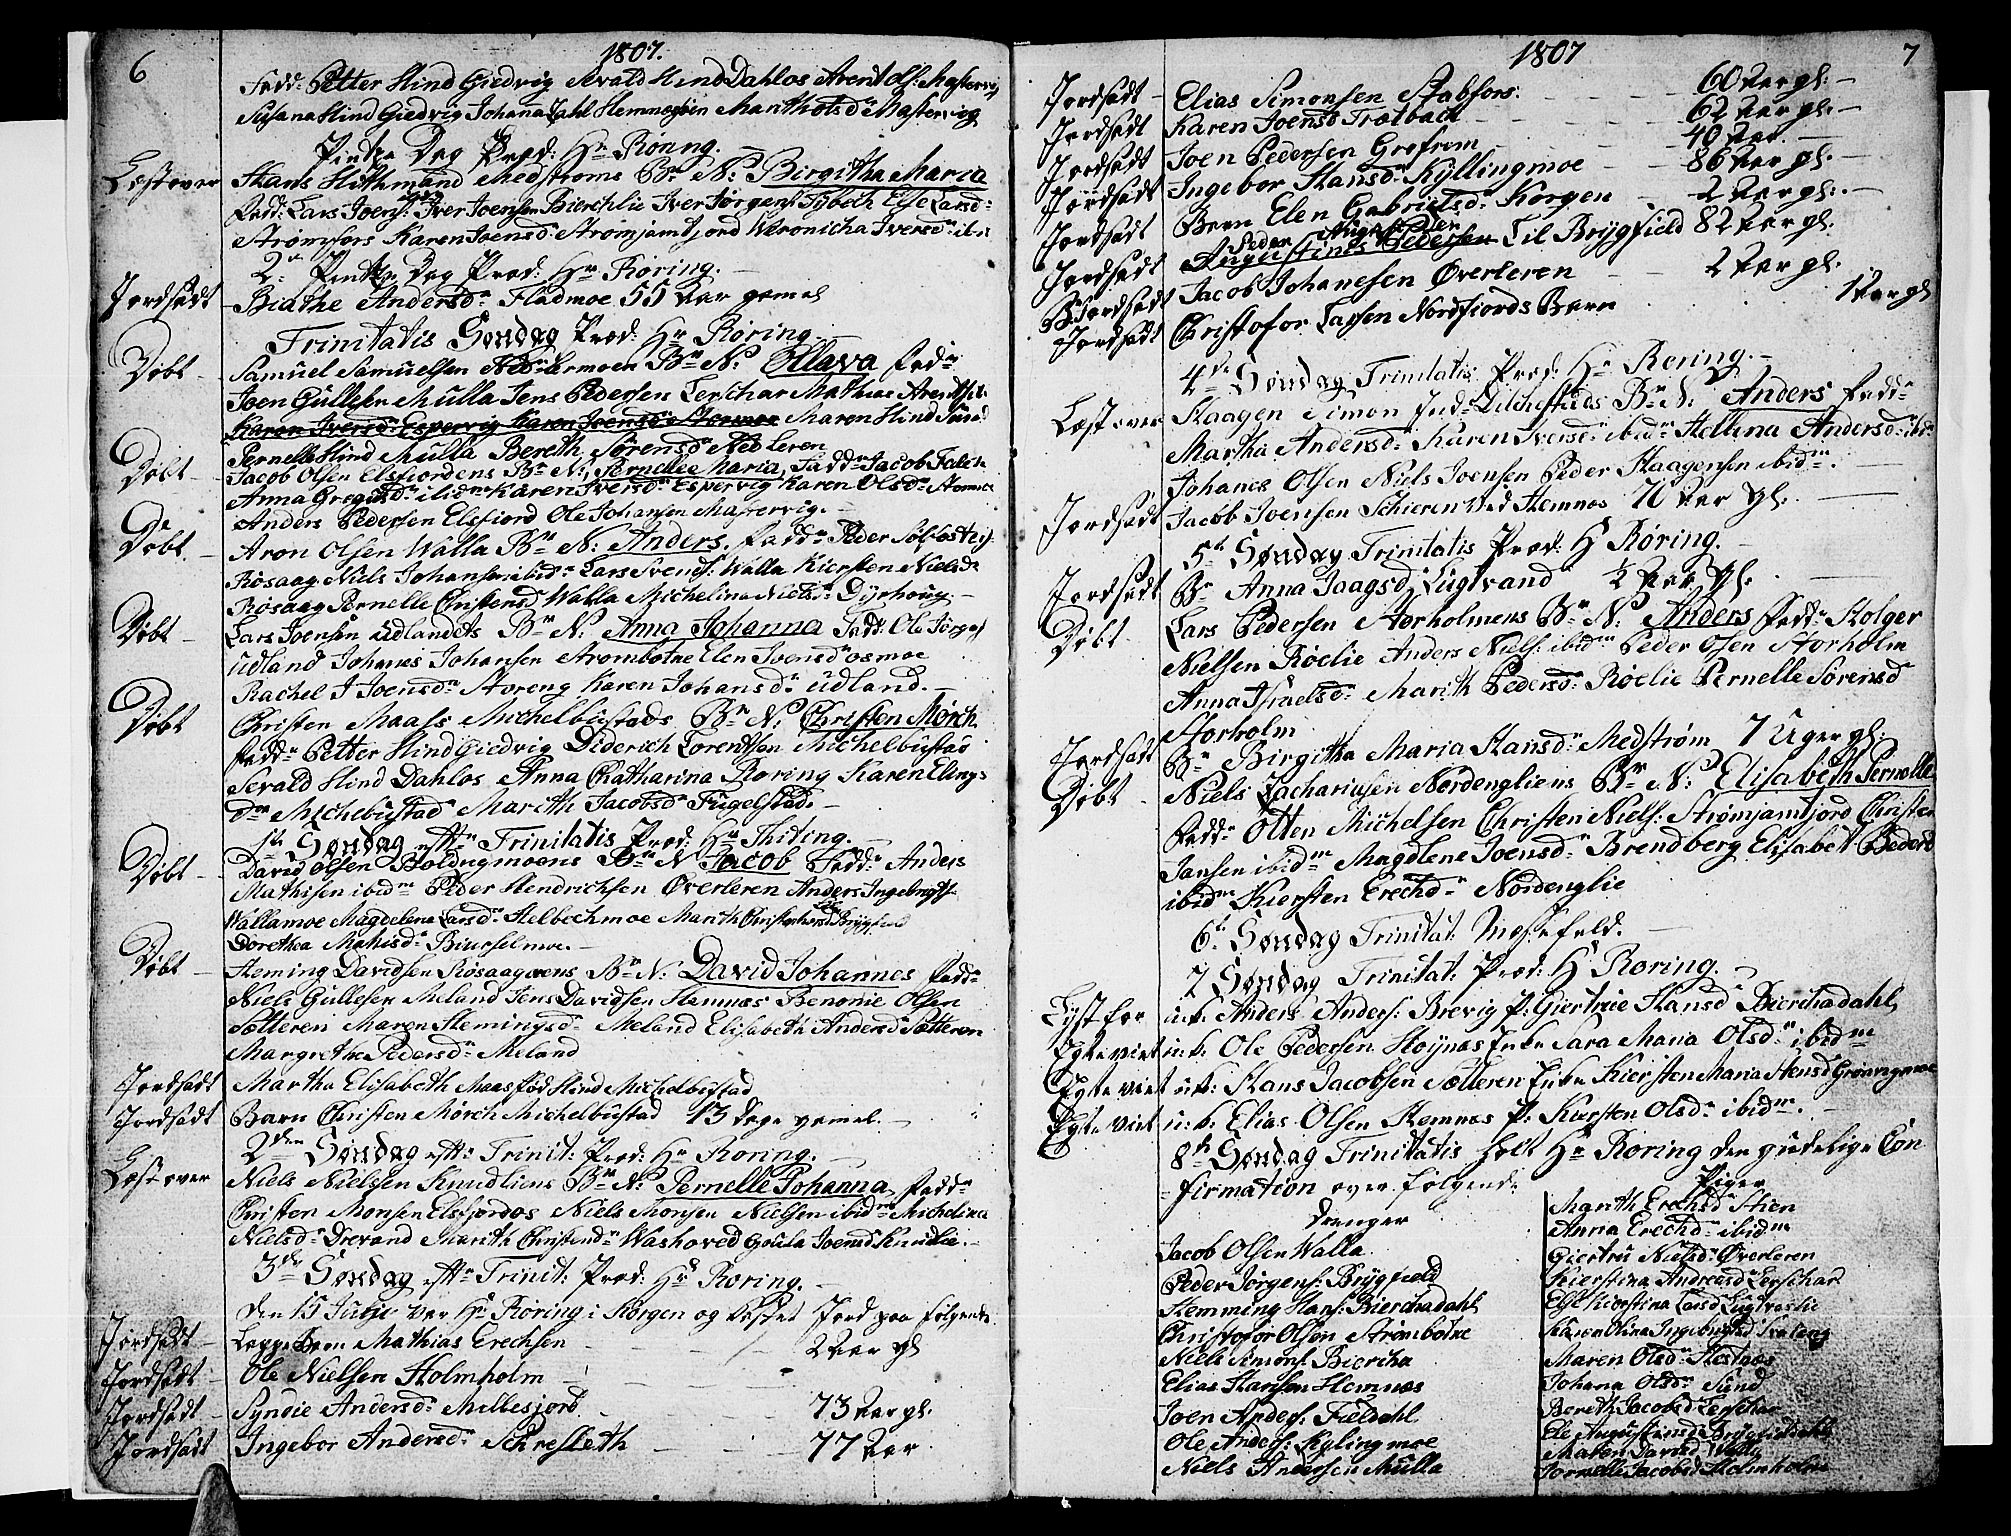 6
1807.
Fadd: Petter Hind Giedvig Sivald Hind Dahlos Arent Ols: Mastervig
Susana Hind Giedvig Johana Dahl Hemnesøen Marith Olsd: Mastervig
Pintze Dag Præd: Hr Röring.
Læst over Hans Hithmand Medstroms Bn N: Birgitha Maria
Fadd: Lars Joens: Iver Joensen Bierchlie Iver Jørgens Else Larsd:
Strømfors Karen Joensd: Strømjamtjord Veronicha Iversd: ibid
2n Pintze Dag Præd: Hr Röring.
Jordfæst Biathe Andersd: Fladmoe 55 Aar gamel
Trinitatis Søndag Præd: Hr Röring
Døbt Samuel Samuelsen Bn N: Ollava Fadd:
Joen Gullesen Mulla Jens Pedersen Lerschar Mathias Arentsen
Karen Iversd: Espervig Karen Joensd: Maren Hind Sund
Pernelle Hind Mulla Bereth Sørensd: Ned Leren
Døbt Jacob Olsen Elsfiordens Bn N: Pernelle Maria, Fadd: Jacob Falch
Anna Gregusd: ibidm Karen Iversd: Espervig Karen Olsd:
Anders Pedersen Elsfiord Ole Johansen Mastervig.
Døbt Aron Olsen Walla Bn N: Anders. Fadd: Peder
Røsaag Niels Johansen ibid: Lars Svends: Walla Kiersten Nielsd:
Røsaag Pernelle Christensd Walla Michelina Nielsd: Dyrhoug.
Døbt Lars Joensen Udlandets Bn N: Anna Johanna Fadd: Ole Jørgs:
Udland Johanes Johansen Strombotne Elen Ivensd: Osmoe
Rachel Joensd: Storeng Karen Johansd: Udland.
Døbt Christen Maass Michelbustads Bn N: Christen Mørch
Fadd: Petter Hind Giedvig Diderich Lorentsen Michelbustad
Sevald Hind Dahlos Anna Chatharina Roring Karen Elings
Dn Michelbustad Marith Jacobsd: Fugelstad.
1te Søndag eftr Trinitatis Præd: Hr Thiting.
Døbt David Olsen Boldngmoens Bn N: Jacob Fadd: Anders
Mathisen ibidm Peder Hendrichsen Øverleren Anders Ingebrigts:
Wallamoe Magdelena Larsd: Helbechmoe Marith Christophersd: Brygfield
Dorethea Mathisd: Biurselmoe.
Døbt Heming Davidsen Røsaagørens Bn N: David Johannes Fadd:
Niels Gullesen Meland Jens Davidsen Hemnæs Benomie Olsen
Sætteren Maren Hemingsd: Meland Elisabeth Andersd Sætteren
Margrethe Pedersd: Meland
Jordfæst Martha Elisabeth Maas fød Hind Michelbustad
Jordfæst Barn Christen Mørch Michelbustad 13 dage gamel.
2den Søndag eft: Trinit: Præd: Hr Roring.
Læst over Niels Nielsen Knudliens Bn N: Pernelle Johanna, Fadd:
Christen Monsen Elsfjordøs Niels Monsen Nielsen ibidm Michelina
Nielsd: Drevand Marith Christensd: Washoved Goula Joensd Knudlie.
3die Søndag eft: Trinit: Præd: Hr Roring.
Den 15 Junii var Hr Röring i Korgen og kastet Jord paa følgende
Jordfæst Lappe Barn Mathias Erechsen 2 Aar gl
Jordfæst Ole Nielsen Holmholm
Jordfæst Syndie Andersd: Millesjord 73 Aar gl:
Jordfæst Ingebor Andersd: Schresleth 77 Aar
1807
7
Jordfæst Elias Simonsen Stabfors: 60 Aar gl:
Jordfæst Karen Joensd Trælbach 62 Aar gl:
Jordfæst Joen Pedersen Grofrem 40 Aar
Jordfæst Ingebor Hansd: Kyllingmoe 86 Aar gl:
Jordfæst Barn Elen Gabrielsd: Korgen 2 Aar gl:
Peder
Jordfæst Augustinus Pedersen Lil Brygfield 82 Aar gl.
Jordfæst Jacob Johanesen Øverleren 2 Aar gl:
Jordfæst Christofor Larsen Nordfjords Barn 1 Aar gl
4de Søndag Trinitatis Præd: Hr Roring.
Læst over Haagen Simon Bn N: Anders Fadd:
Martha Andersd: Karen Iversd: ibidm Hellina Andersd: ibid
Johanes Olsen Niels Joensen Peder Haagensen ibidm.
Jordfæst Jacob Joensen Schieren ved Hemnes 70 Aar gl.
5te Søndag Trinitatis Præd: Hr Röring.
Jordfæst Bn Anna Jaagsd: Lugtvand ½ Aar gl:
Døbt Lars Pedersen Storholmens Bn N: Anders Fadd: Holger
Nielsen Røelie Anders Niels: ibidm Peder Olsen Storholm
Anna Israelsd: Marith Pedersd: Røelie Pernelle Sørensd
Storholm
Jordfæst Bn Birgitha Maria Hansd: Medstrøm 7 Uger gl:
Døbt Niels Zachariasen Nordengliens Bn N: Elisabeth Pernelle
Fadd: Otten Michelsen Christen Niels: Strømjamtjord Christen
Jansen ibidm Magdlene Joensd: Brendberg Elisabet Pedersd
ibidm Kiersten Erechd: Nordenglie
6te Søndag Trinitat: Messefeld.
7 Søndag Trinitat: Præd: Hr Roring.
Lyst for u:k: Anders Anders: Brevig p: Giertrue Hansd Bierchadahl
Egteviet u:k: Ole Pedersen Høynæs Enke Sara Maria Olsd: ibidm
Egteviet u:k: Hans Jacobsen Sætteren Enke Kiersten Maria Hansd Grönngmoe
Egteviet u:k: Elias Olsen Hemnæs P: Kiersten Olsd: ibidm.
8te Søndag Trinitatis holt Hr Roring den gudelige Con
firmation over følgende
Drenger
Jacob Olsen Walla
Peder Jørgens: Brygfield
Hemming Hans: Bierchadahl
Christofor Olsen Strømbotne
Niels Simons: Biercha
Elias Hansen Hemnæs
Joen Anders: Fieldahl
Ole Anders: Kylingmoe
Niels Andersen Mulla
Piger
Marith Erechsd Stien
Anna Erechd: ibidm
Giertru Nielsd: Øverleren
Kierstina Andreasd Lerschar
Else Kierstina Larsd Lugtvaslie
Karen Olina Ingebrigtsd
Maren Olsd: Hestnæs
Johana Olsd: Sund
Bereth Jacobsd Lerschar
Ele Augustinusd Brygfieldahl
Maren Davidsd Walla
Pernelle Jacobsd Holmholm